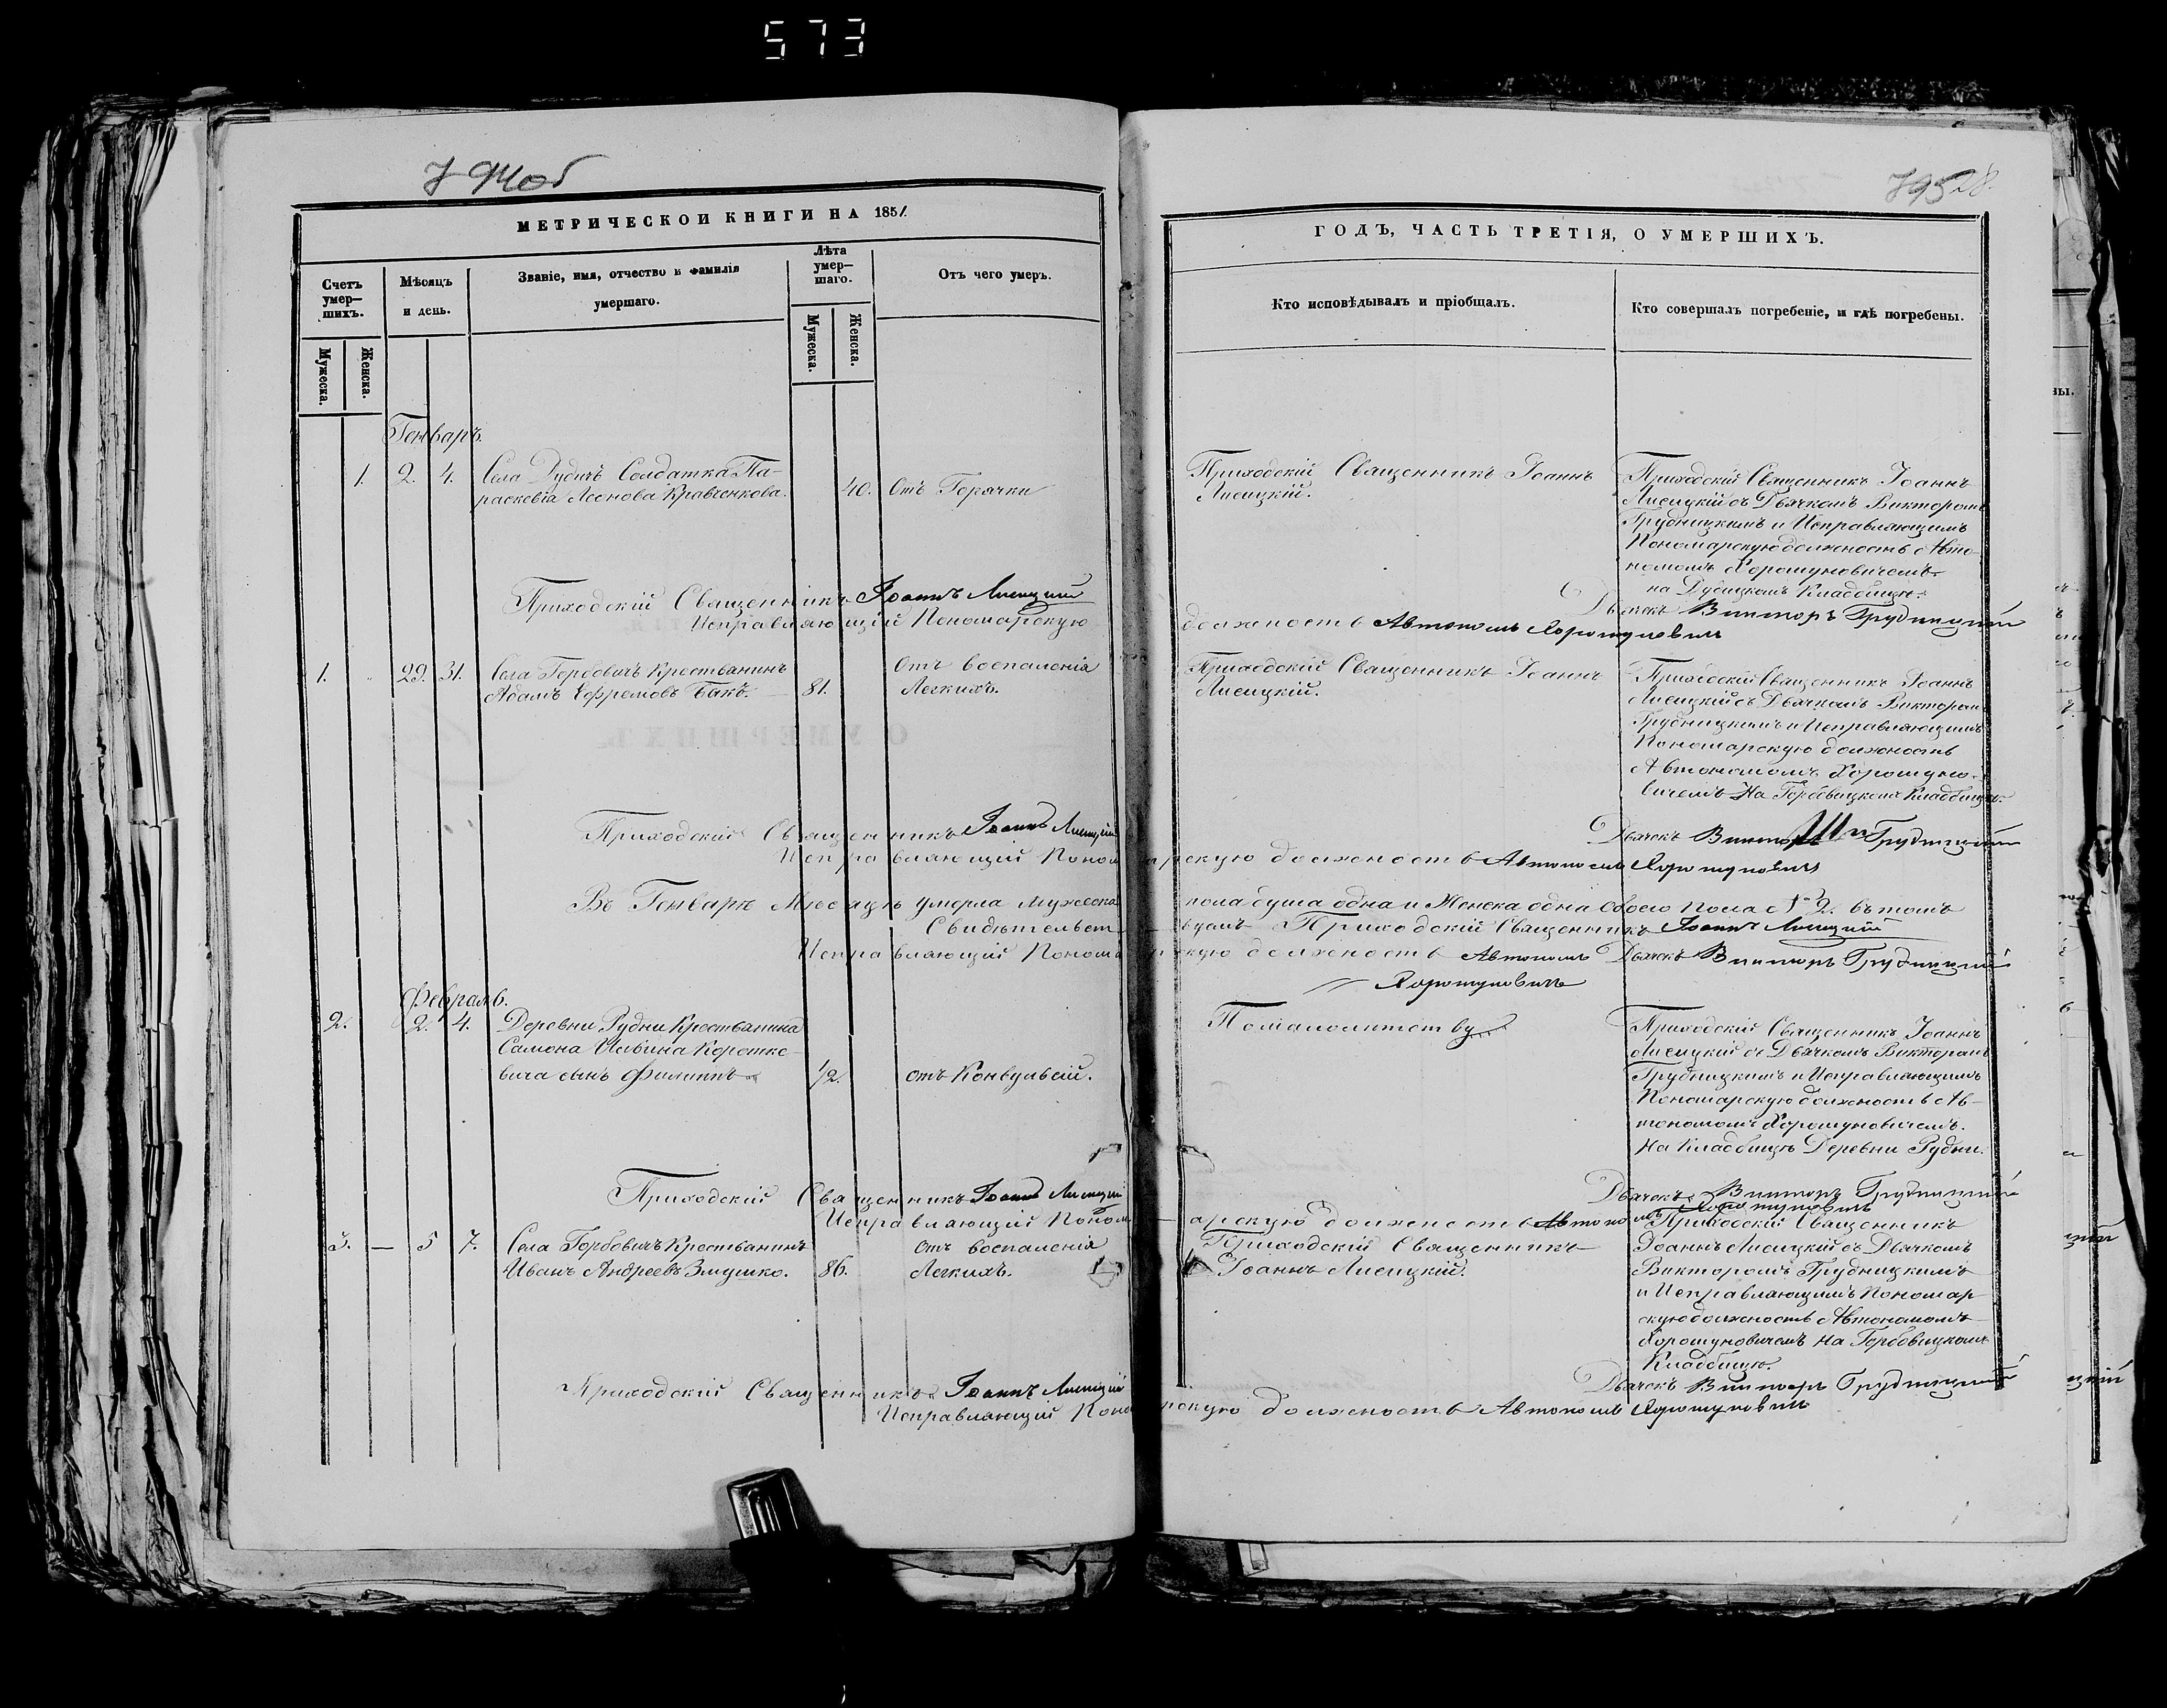 573
794об
795 28.
МЕТРИЧЕСКОИ КНИГИ НА 1851.
Счетъ умер— шихъ.
Мужеска.
Женска.
Мѣсяцъ и день.
Званіе, имя, отчество и фамилія умершаго.
Лѣта умер— шаго.
Мужеска.
Женска.
Отъ чего умеръ.
ГОДЪ, ЧАСТЬ ТРЕТІЯ, О УМЕРШИХЪ.
Кто исповѣдывалъ и пріобщалъ.
Кто совершалъ погребеніе, и гдѣ погребены.
Генварь.
1. 2. 4. Села Дудичъ Солдатка Па-
расковіа Леонова Кравченкова. 40. Отъ Горячки
Приходскій Священникъ Іоаннъ
Лисицкій.
Приходскій Священникъ Іоаннъ
Лисицкій съ Дьячкомъ Викторомъ
Грудницкимъ и Исправляющимъ
Пономарскую должность Авто-
номомъ Хорошуновичемъ
на Дудицкомъ Кладбищѣ.
Приходскій Священникъ Іоаннъ Лисицкій
Дьячокъ Викторъ Грудницкій
Исправляющій Пономарскую должность Автономъ Хорошуновичъ
1. 29. 31. Села Горбовичъ Крестьянинъ Отъ воспаленія
Адамъ Ефремовъ Бакъ. 81. Легкихъ.
Приходскій Священникъ Іоаннъ
Лисицкій.
Приходскій Священникъ Іоаннъ
Лисицкій съ Дьячкомъ Викторомъ
Грудницкимъ и Исправляющимъ
Пономарскую должность
Автономомъ Хорошуно-
вичемъ На Горбовицкомъ Кладбищѣ.
Приходскій Священникъ Іоаннъ Лисицкій
Дьячокъ Викторъ Грудницкій
Исправляющій Пономарскую должность Автономъ Хорошуновичъ
Въ Генварѣ Мѣсяцѣ умерла мужеска пола душа одна и Женска одна обоего пола № 2. въ томъ
Свидѣтельствуемъ Приходскій Священникъ Іоаннъ Лисицкій
Исправляющій Пономарскую должность Автономъ Дьячокъ Викторъ Грудницкій
Хорошуновичъ
Февраль.
2. 2. 4. Деревни Рудни Крестьянина
Самона Ильина Коротке-
вича сынъ Филиппъ 1/2. отъ Конвульсій.
Приходскій Священникъ Іоаннъ
Лисицкій съ Дьячкомъ Викторомъ
Грудницкимъ и Исправляющимъ
Пономарскую должность Ав-
тономомъ Хорошуновичемъ.
На Кладбищѣ Деревни Рудни.
Приходскій Священникъ Іоаннъ Лисицкій
Дьячокъ Викторъ Грудницкій
Исправляющій Пономарскую должность Автономъ Хорошуновичъ
3. — 5 7. Села Горбовичъ Крестьянинъ Отъ воспаленія
Иванъ Андреевъ Змушко. 86. Легкихъ.
Приходскій Священникъ
Іоаннъ Лисицкій.
Приходскій Священникъ
Іоаннъ Лисицкій съ Дьячкомъ
Викторомъ Грудницкимъ
и Исправляющимъ Пономар
скую должность Автономомъ
Хорошуновичемъ На Горбовицкомъ
Кладбищѣ.
Приходскій Священникъ Іоаннъ Лисицкій
Дьячокъ Викторъ Грудницкій
Исправляющій Пономарскую должность Автономъ Хорошуновичъ